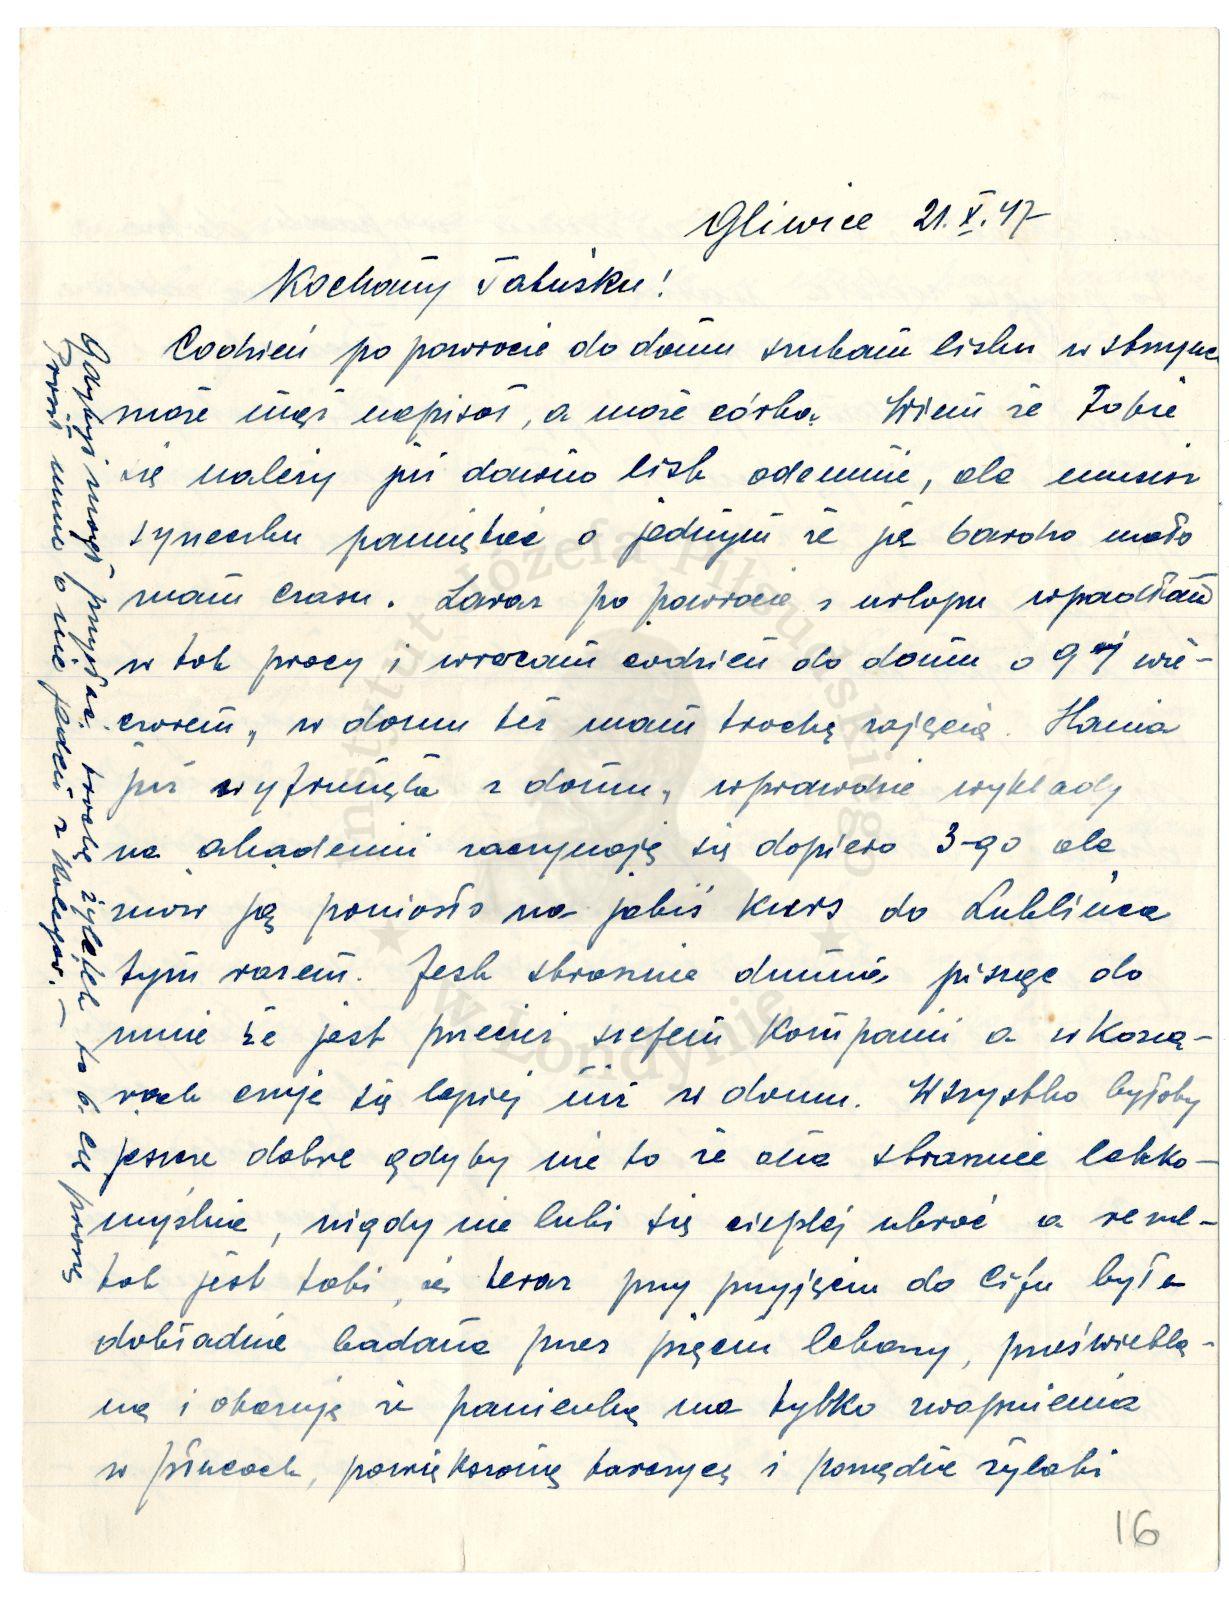 Gliwice 21.X.47
Kochany Tatuśku!
Codzień po powrocie do domu szukam listu w skrzynce
może mąż napisał, a może córka. Wiem że Tobie
się należy już dawno list odemnie, ale musisz
syneczku pamiętać o jednym że ja bardzo mało
mam czasu. Zaraz po powrocie z urlopu wpadłam
w tok pracy i wracam codzień do domu o 9tej wie-
czorem, w domu też mam trochę zajęcia. Hania
już wyfrunęła z domu, wprawdzie wykłady
na akademii zaczynają się dopiero 3-go ale
znów ją poniosło na jakiś kurs do Lublińca
tym razem. Jest strasznie dumna pisząc do
mnie że jest przecież szefem kompanii a w kosza-
rach czuje się lepiej niż w domu. Wszystko byłoby
jeszcze dobrze gdyby nie to że ona strasznie lekko-
myślnie, nigdy nie lubi się cieplej ubrać a rezul-
tat jest taki, że teraz przy przyjęciu do Cifu była
dokładnie badana przez pięciu lekarzy, prześwietla-
na i okazuje że panienka ma tylko zwapnienia
w płucach, powiększoną tarczycę i porządne żylaki
Gdybyś mógł przysłać trochę żyletek to b. Cię proszę
Prosił mnie o nie jeden z kolegów. –
16
Instytut Józefa Piłsudskiego
w Londynie